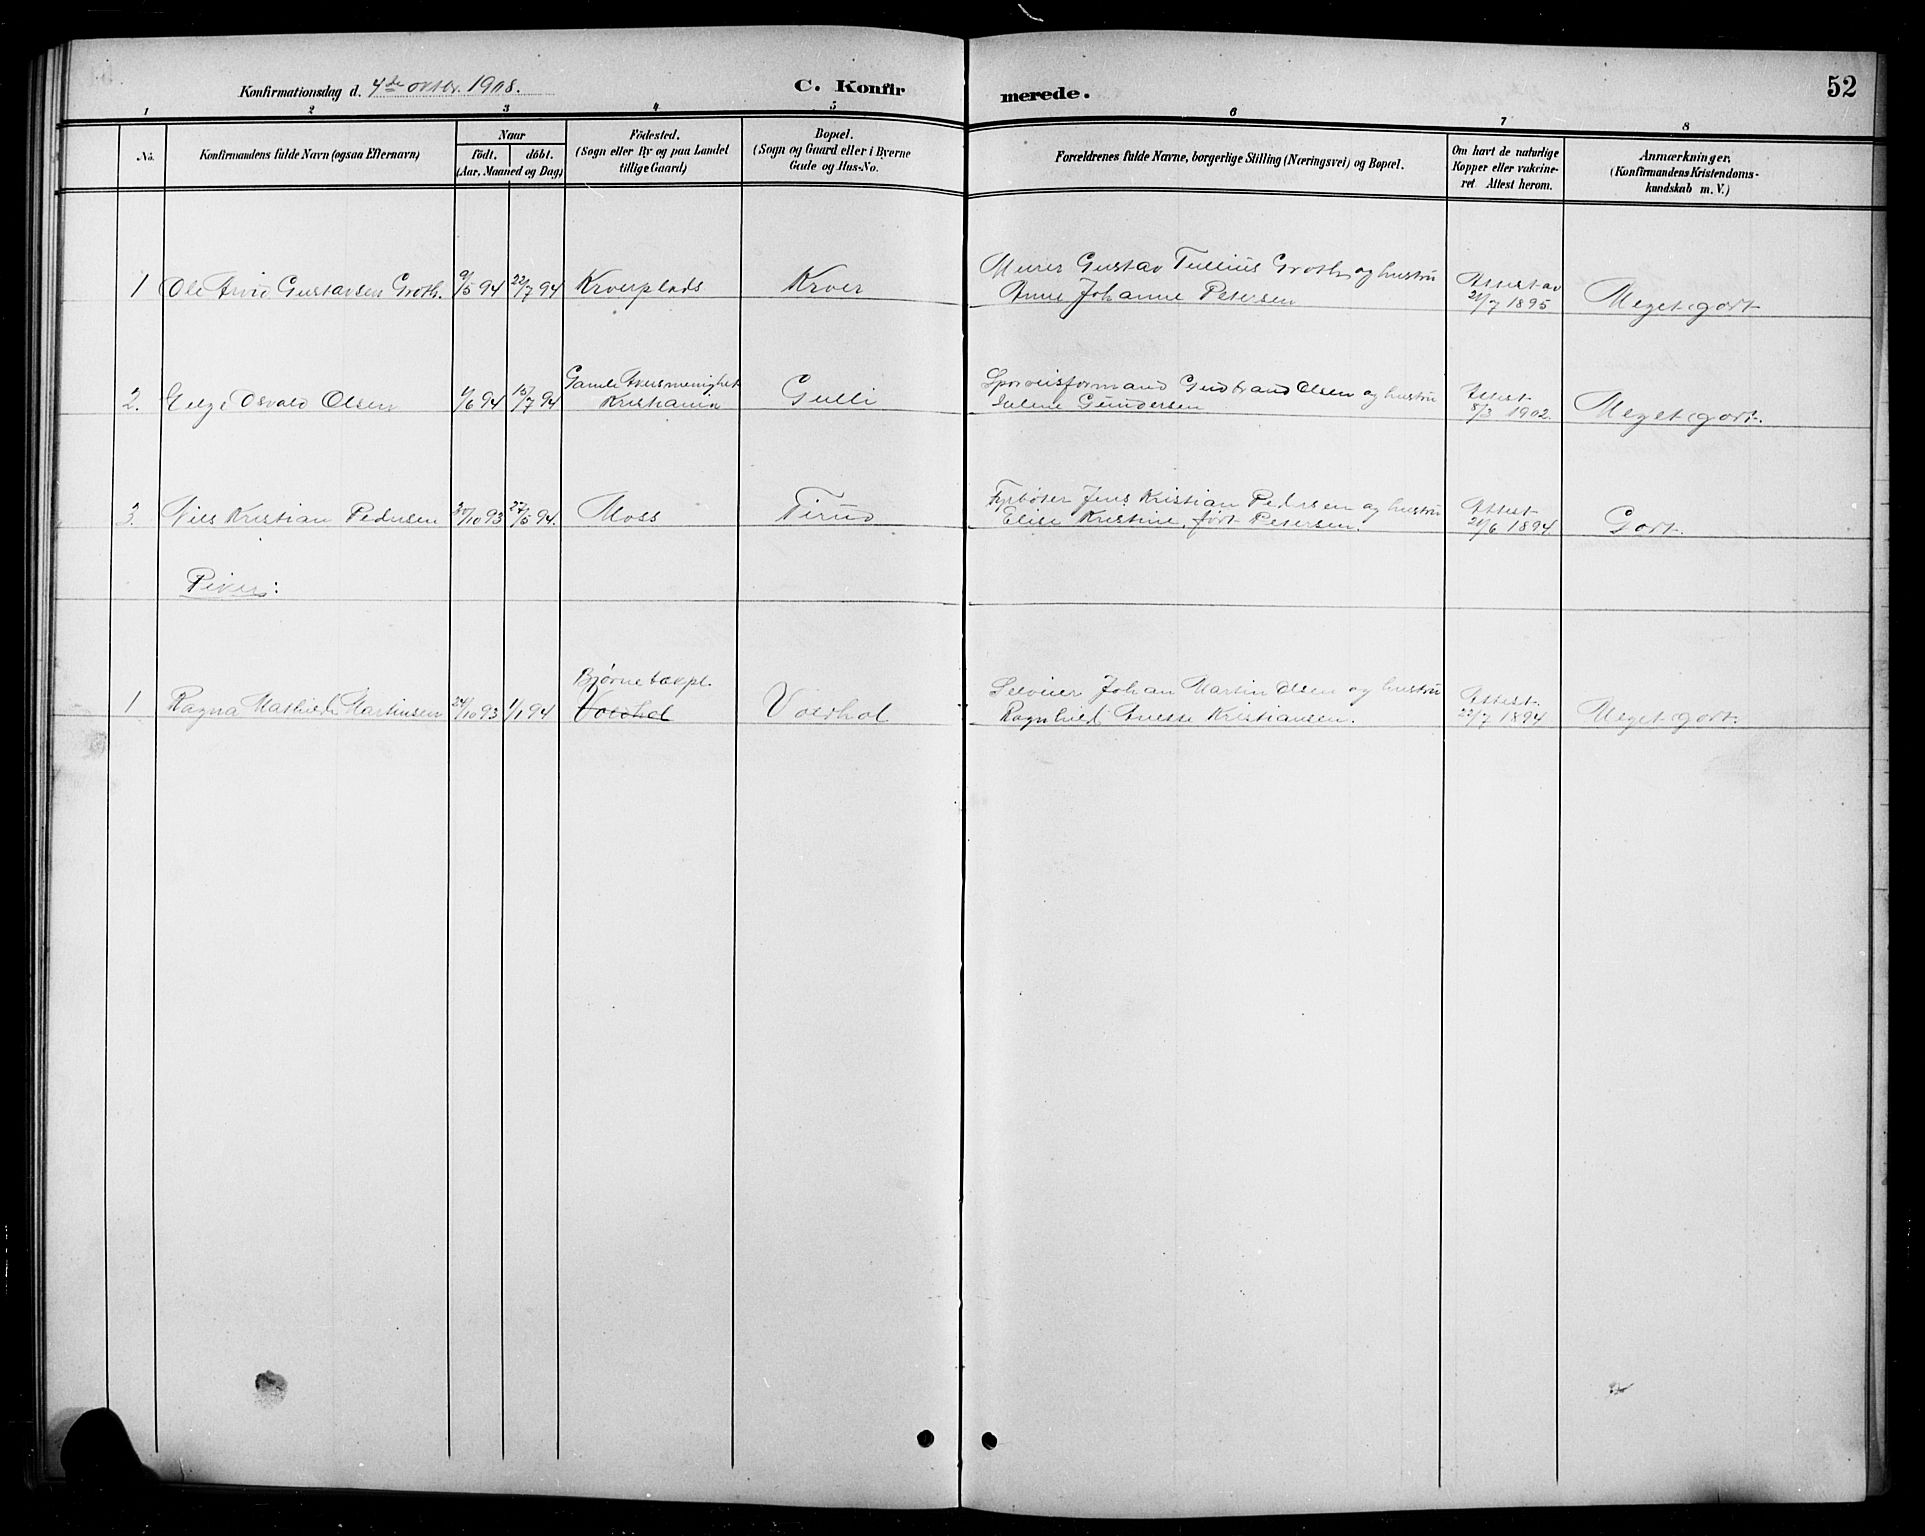 Konfirmationsdag d. 4de oktbr. 1908.
C. Konfir
merede.
52
1 2 3 4 5 6 7 8
No.
Konfirmandens fulde Navn (ogsaa Efternavn)
Naar
födt. döbt.
(Aar, Maaned og Dag)
Födested.
(Sogn eller By og paa Landet
tillige Gaard)
Bopæl.
(Sogn og Gaard eller i Byerne
Gade og Hus-No.
Forældrenes fulde Navne, borgerlige Stilling (Næringsvei) og Bopæl.
Om havt de naturlige
Kopper eller vakcine-
ret Attest herom.
Anmærkninger,
(Konfirmandens Kristendoms-
kundskab m. V.)
1 Ole Arvid Gustavsen Groth. 9/5 94 22/7 94 Kroerplads Kroer
Murer Gustav Tullius Groth og hustru
Anne Johanne Petersen
Attest av
21/7 1895
Meget godt
2. Helge Osvald Olsen 1/6 94 15/7 94
Gamle Akersmenighet
Kristiania
Gulli
Sporveisformand Gudbrand Olsen og hustru
Juline Gundersen
Attest
8/3 1902.
Meget godt.
3. Nils Kristian Pedersen 30/10 93 27/5 94. Moss Tirud
Fyrbøter Jens Kristian Pedersen og hustru
Elise Kristine, født Petersen.
Attest
21/6 1894.
Godt.
Piker:
1 Ragna Mathilde Martinsen 24/10 93 1/1 94
Bjørnebækpl.
Voldhol
Voldhol
Selveier Johan Martin Olsen og hustru
Ragnhild Kristiansen.
Attest
22/7 1894
Meget godt.